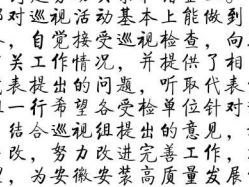 对巡视活动基本上能做到
，自觉接受巡视检查，向
关工作情况，并提供了相
表提出的问题，听取代表
一行希望各受检单位针对
结合巡视组提出的意见，
改，努力改进完善工作，
，为安徽安装高质量发展